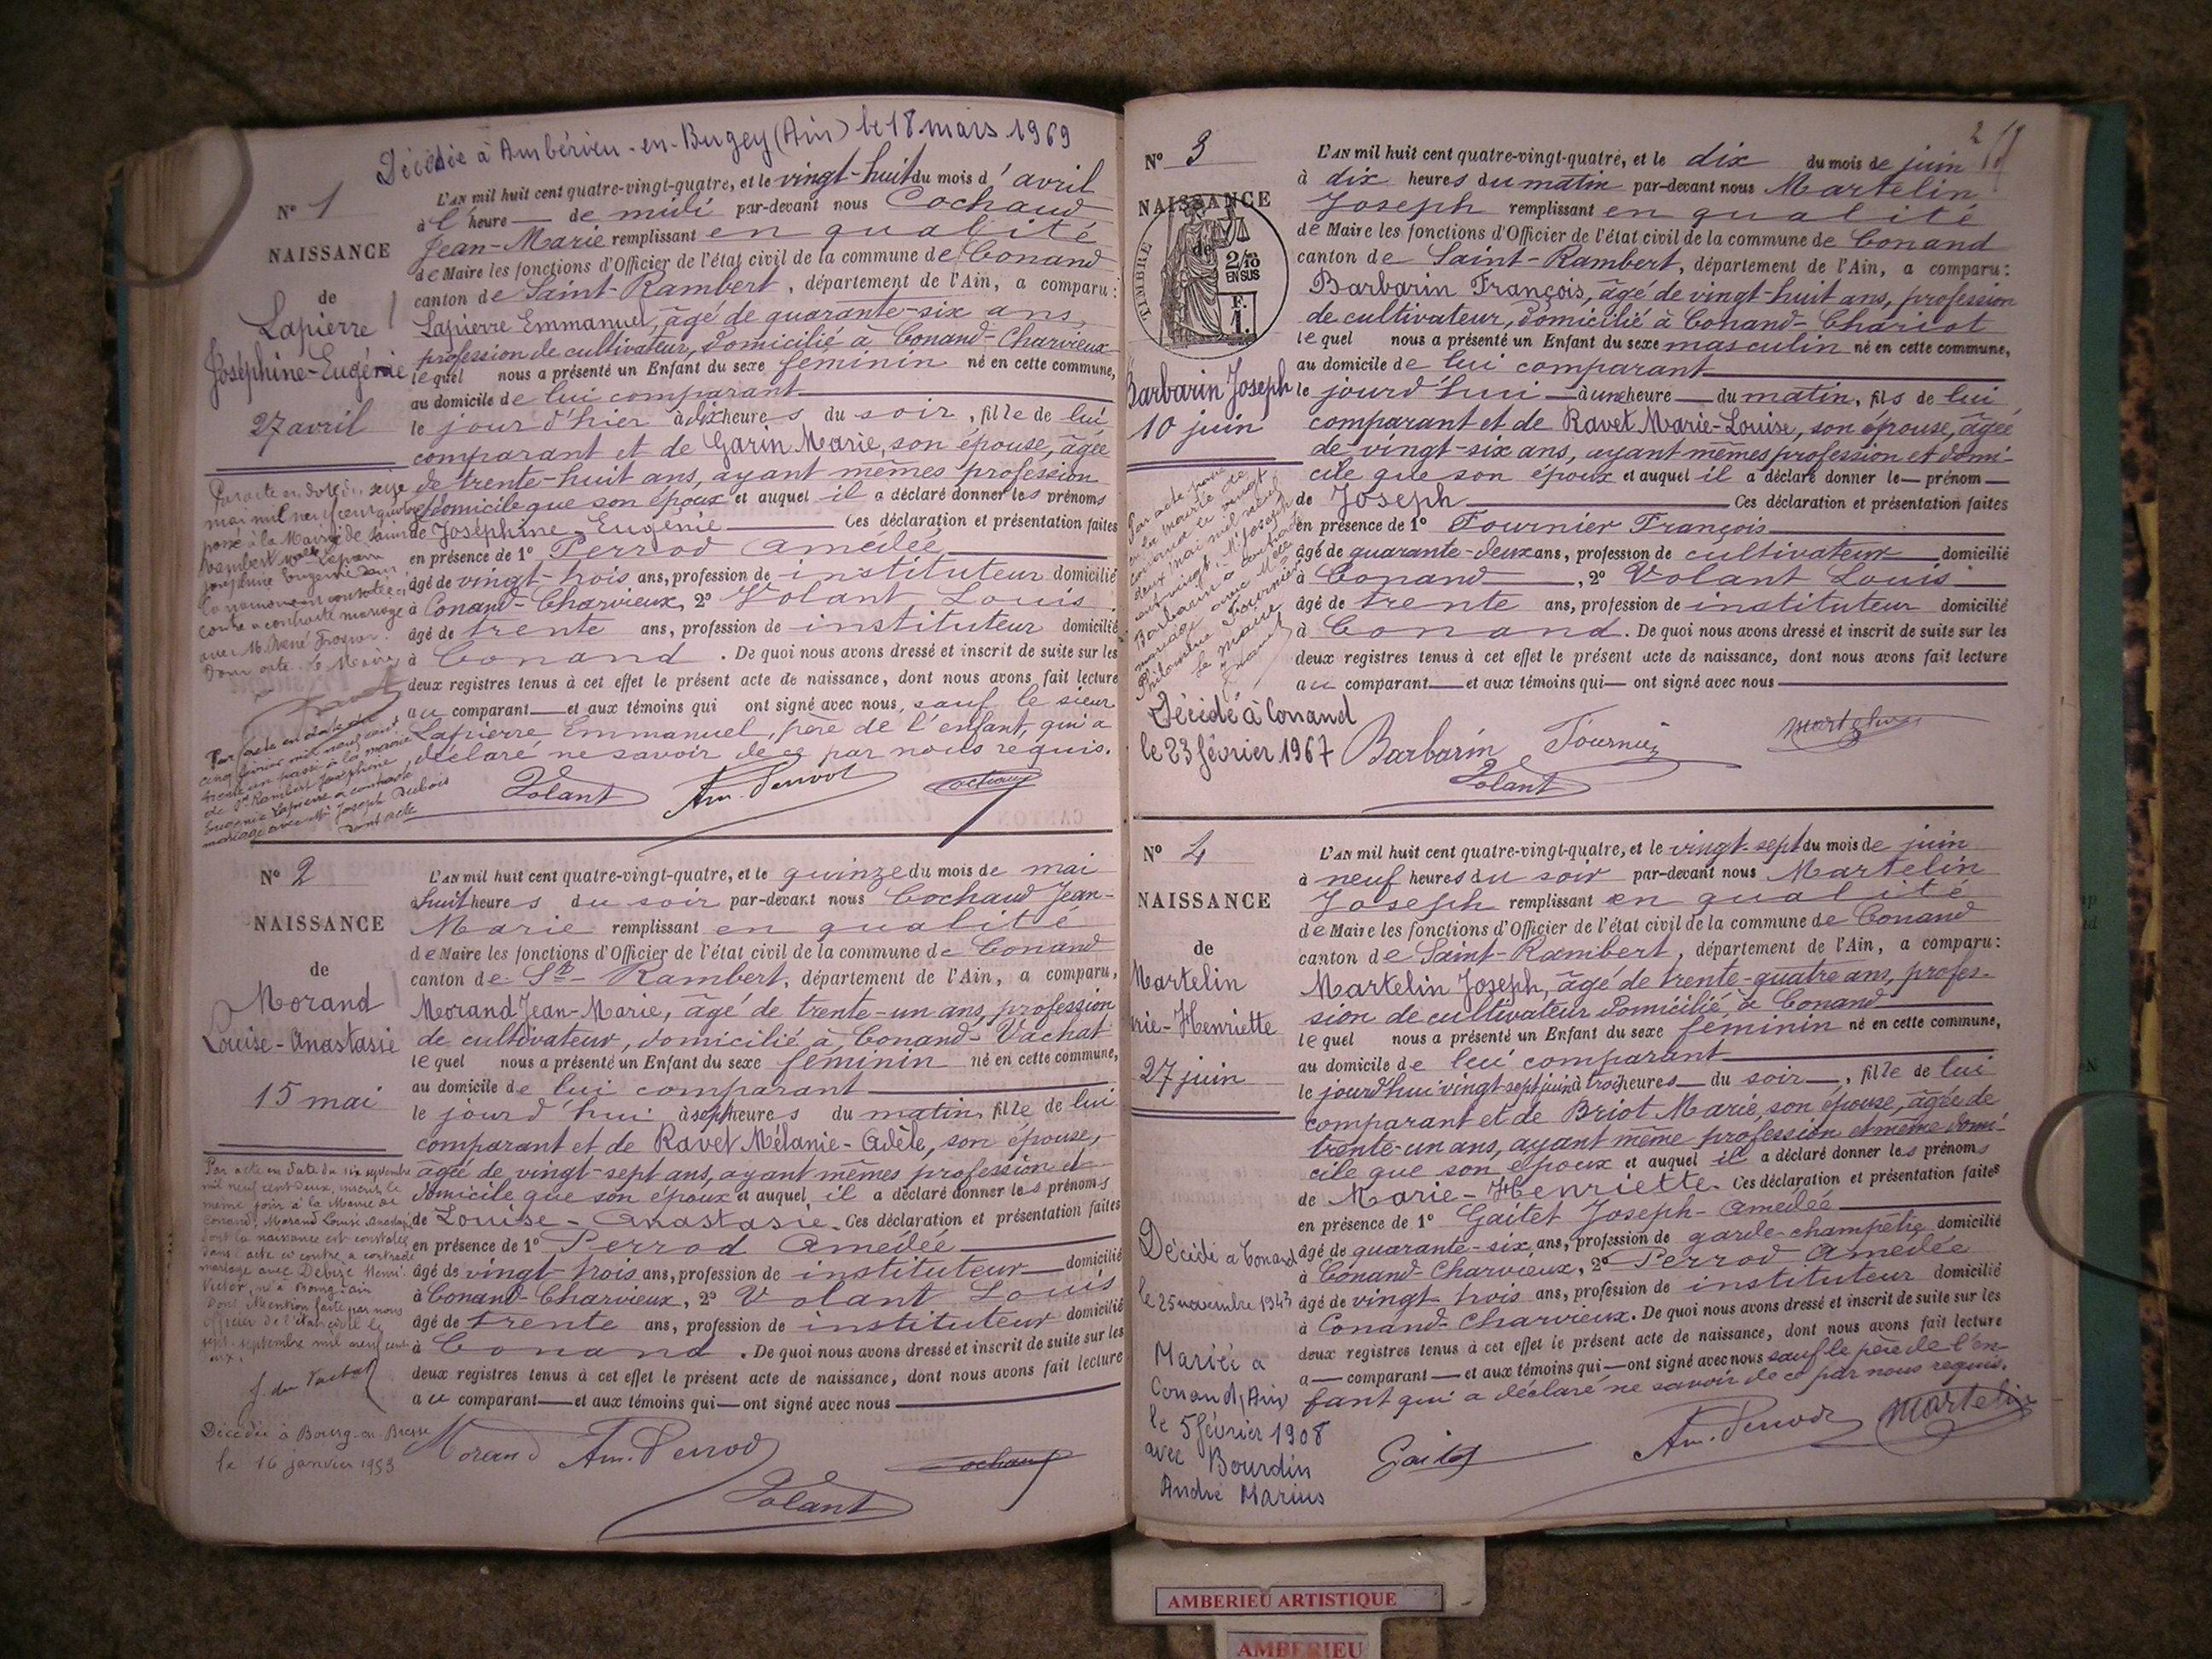 Décédée à Ambérieu-en-Bugey (Ain) le 18 mars 1969
N° 1
NAISSANCE
de
Lapierre
Joséphine-Eugénie
27 avril
L'AN mil huit cent quatre-vingt-quatre, et le vingt-huit du mois d'avril
à l'heure — de midi par-devant nous Cochaud
Jean-Marie remplissant en qualité
de Maire les fonctions d'Officier de l'état civil de la commune de Conand
canton de Saint-Rambert, département de l'Ain, a comparu :
Lapierre Emmanuel, âgé de quarante-six ans,
profession de cultivateur, domicilié à Conand-Charvieux
lequel nous a présenté un Enfant du sexe féminin né en cette commune,
au domicile de lui comparant
le jour d'hier à dix heures du soir, fille de lui
comparant et de Garin Marie, son épouse, âgée
de trente-huit ans, ayant mêmes profession
et domicile que son époux et auquel il a déclaré donner les prénoms
de Joséphine-Eugénie — Ces déclaration et présentation faites
en présence de 1° Perrod Amédée
âgé de vingt-trois ans, profession de instituteur domicilié
à Conand-Charvieux, 2° Volant Louis
âgé de trente ans, profession de instituteur domicilié
à Conand. De quoi nous avons dressé et inscrit de suite sur les
deux registres tenus à cet effet le présent acte de naissance, dont nous avons fait lecture
au comparant — et aux témoins qui ont signé avec nous, sauf le sieur
Lapierre Emmanuel, père de l'enfant, qui a
déclaré ne savoir de ce par nous requis.
Volant Am. Perrod Cochaud
Par acte en date du seize
mai mil neuf cent quatre
passé à la Mairie de Saint
Rambert Lapierre
Joséphine Eugénie dont
la naissance est constatée ci
contre a contracté mariage
avec M. René
Dont acte. Le Maire
Par acte en date du
cinq février mil neuf cent
trente un passé à la mairie
de St Rambert Joséphine
Eugénie Lapierre a contracté
mariage avec Mr Joseph Dubois
Dont acte
N° 2
NAISSANCE
de
Morand
Louise-Anastasie
15 mai
L'AN mil huit cent quatre-vingt-quatre, et le quinze du mois de mai
à huit heures du soir par-devant nous Cochaud Jean-
Marie remplissant en qualité
de Maire les fonctions d'Officier de l'état civil de la commune de Conand
canton de St-Rambert, département de l'Ain, a comparu,
Morand Jean-Marie, âgé de trente-un ans, profession
de cultivateur, domicilié à Conand-Vachat
lequel nous a présenté un Enfant du sexe féminin né en cette commune,
au domicile de lui comparant
le jour d'hui à sept heures du matin, fille de lui
comparant et de Ravet Mélanie-Adèle, son épouse,
âgée de vingt-sept ans, ayant mêmes profession et
domicile que son époux et auquel il a déclaré donner les prénoms
de Louise-Anastasie. Ces déclaration et présentation faites
en présence de 1° Perrod Amédée
âgé de vingt-trois ans, profession de instituteur — domicilié
à Conand-Charvieux, 2° Volant Louis
âgé de trente ans, profession de instituteur domicilié
à Conand. De quoi nous avons dressé et inscrit de suite sur les
deux registres tenus à cet effet le présent acte de naissance, dont nous avons fait lecture
au comparant — et aux témoins qui — ont signé avec nous
Morand Am. Perrod Cochaud
Volant
Par acte en date du six septembre
mil neuf cent deux, inscrit le
même jour à la Mairie de
Conand, Morand Louise Anastasie
dont la naissance est constatée
dans l'acte ci contre a contracté
mariage avec Debize Henri
Victor, né à Bourg : Ain
Dont Mention faite par nous
officier de l'état civil le
sept septembre mil neuf cent
deux.
Décédée à Bourg-en-Bresse
le 16 janvier 1953
N° 3
NAISSANCE
de
TIMBRE
2/10
EN SUS
F.
1.
Barbarin Joseph
10 juin
L'AN mil huit cent quatre-vingt-quatre, et le dix du mois de juin
à dix heures du matin par-devant nous Martelin
Joseph remplissant en qualité
de Maire les fonctions d'Officier de l'état civil de la commune de Conand
canton de Saint-Rambert, département de l'Ain, a comparu :
Barbarin François, âgé de vingt-huit ans, profession
de cultivateur, domicilié à Conand-Chariot
lequel nous a présenté un Enfant du sexe masculin né en cette commune,
au domicile de lui comparant
le jourd'hui — à une heure — du matin, fils de lui
comparant et de Ravet Marie-Louise, son épouse, âgée
de vingt-six ans, ayant mêmes profession et domi-
cile que son époux et auquel il a déclaré donner le — prénom —
de Joseph — Ces déclaration et présentation faites
en présence de 1° Fournier François
âgé de quarante-deux ans, profession de cultivateur — domicilié
à Conand —, 2° Volant Louis
âgé de trente ans, profession de instituteur domicilié
à Conand. De quoi nous avons dressé et inscrit de suite sur les
deux registres tenus à cet effet le présent acte de naissance, dont nous avons fait lecture
au comparant — et aux témoins qui — ont signé avec nous
Barbarin Fournier Martelin
Volant
Par acte passé
en la mairie de
Conand le vingt
deux mai mil neuf
cent vingt Mr Joseph
Barbarin a contracté
mariage avec Mlle
Philomène Fournier
Le Maire
Décédé à Conand
le 23 février 1967
N° 4
NAISSANCE
de
Martelin
Marie-Henriette
27 juin
L'AN mil huit cent quatre-vingt-quatre, et le vingt-sept du mois de juin
à neuf heures du soir par-devant nous Martelin
Joseph remplissant en qualité
de Maire les fonctions d'Officier de l'état civil de la commune de Conand
canton de Saint-Rambert, département de l'Ain, a comparu :
Martelin Joseph, âgé de trente-quatre ans, profes-
sion de cultivateur domicilié à Conand
lequel nous a présenté un Enfant du sexe féminin né en cette commune,
au domicile de lui comparant
le jourd'hui vingt-sept juin à trois heures — du soir —, fille de lui
comparant et de Briot Marie, son épouse, âgée de
trente-un ans, ayant même profession et même domi-
cile que son époux et auquel il a déclaré donner les prénoms
de Marie-Henriette. Ces déclaration et présentation faites
en présence de 1° Gaitet Joseph-Amédée
âgé de quarante-six ans, profession de garde-champêtre domicilié
à Conand-Charvieux, 2° Perrod Amédée
âgé de vingt-trois ans, profession de instituteur domicilié
à Conand-Charvieux. De quoi nous avons dressé et inscrit de suite sur les
deux registres tenus à cet effet le présent acte de naissance, dont nous avons fait lecture
a — comparant — et aux témoins qui — ont signé avec nous sauf le père de l'en-
fant qui a déclaré ne savoir de ce par nous requis.
Gaitet Am. Perrod Martelin
Décédé a Conand
le 25 novembre 1943
Mariée a
Conand, Ain
le 5 février 1908
avec Bourdin
André Marius
AMBERIEU ARTISTIQUE
AMBERIEU